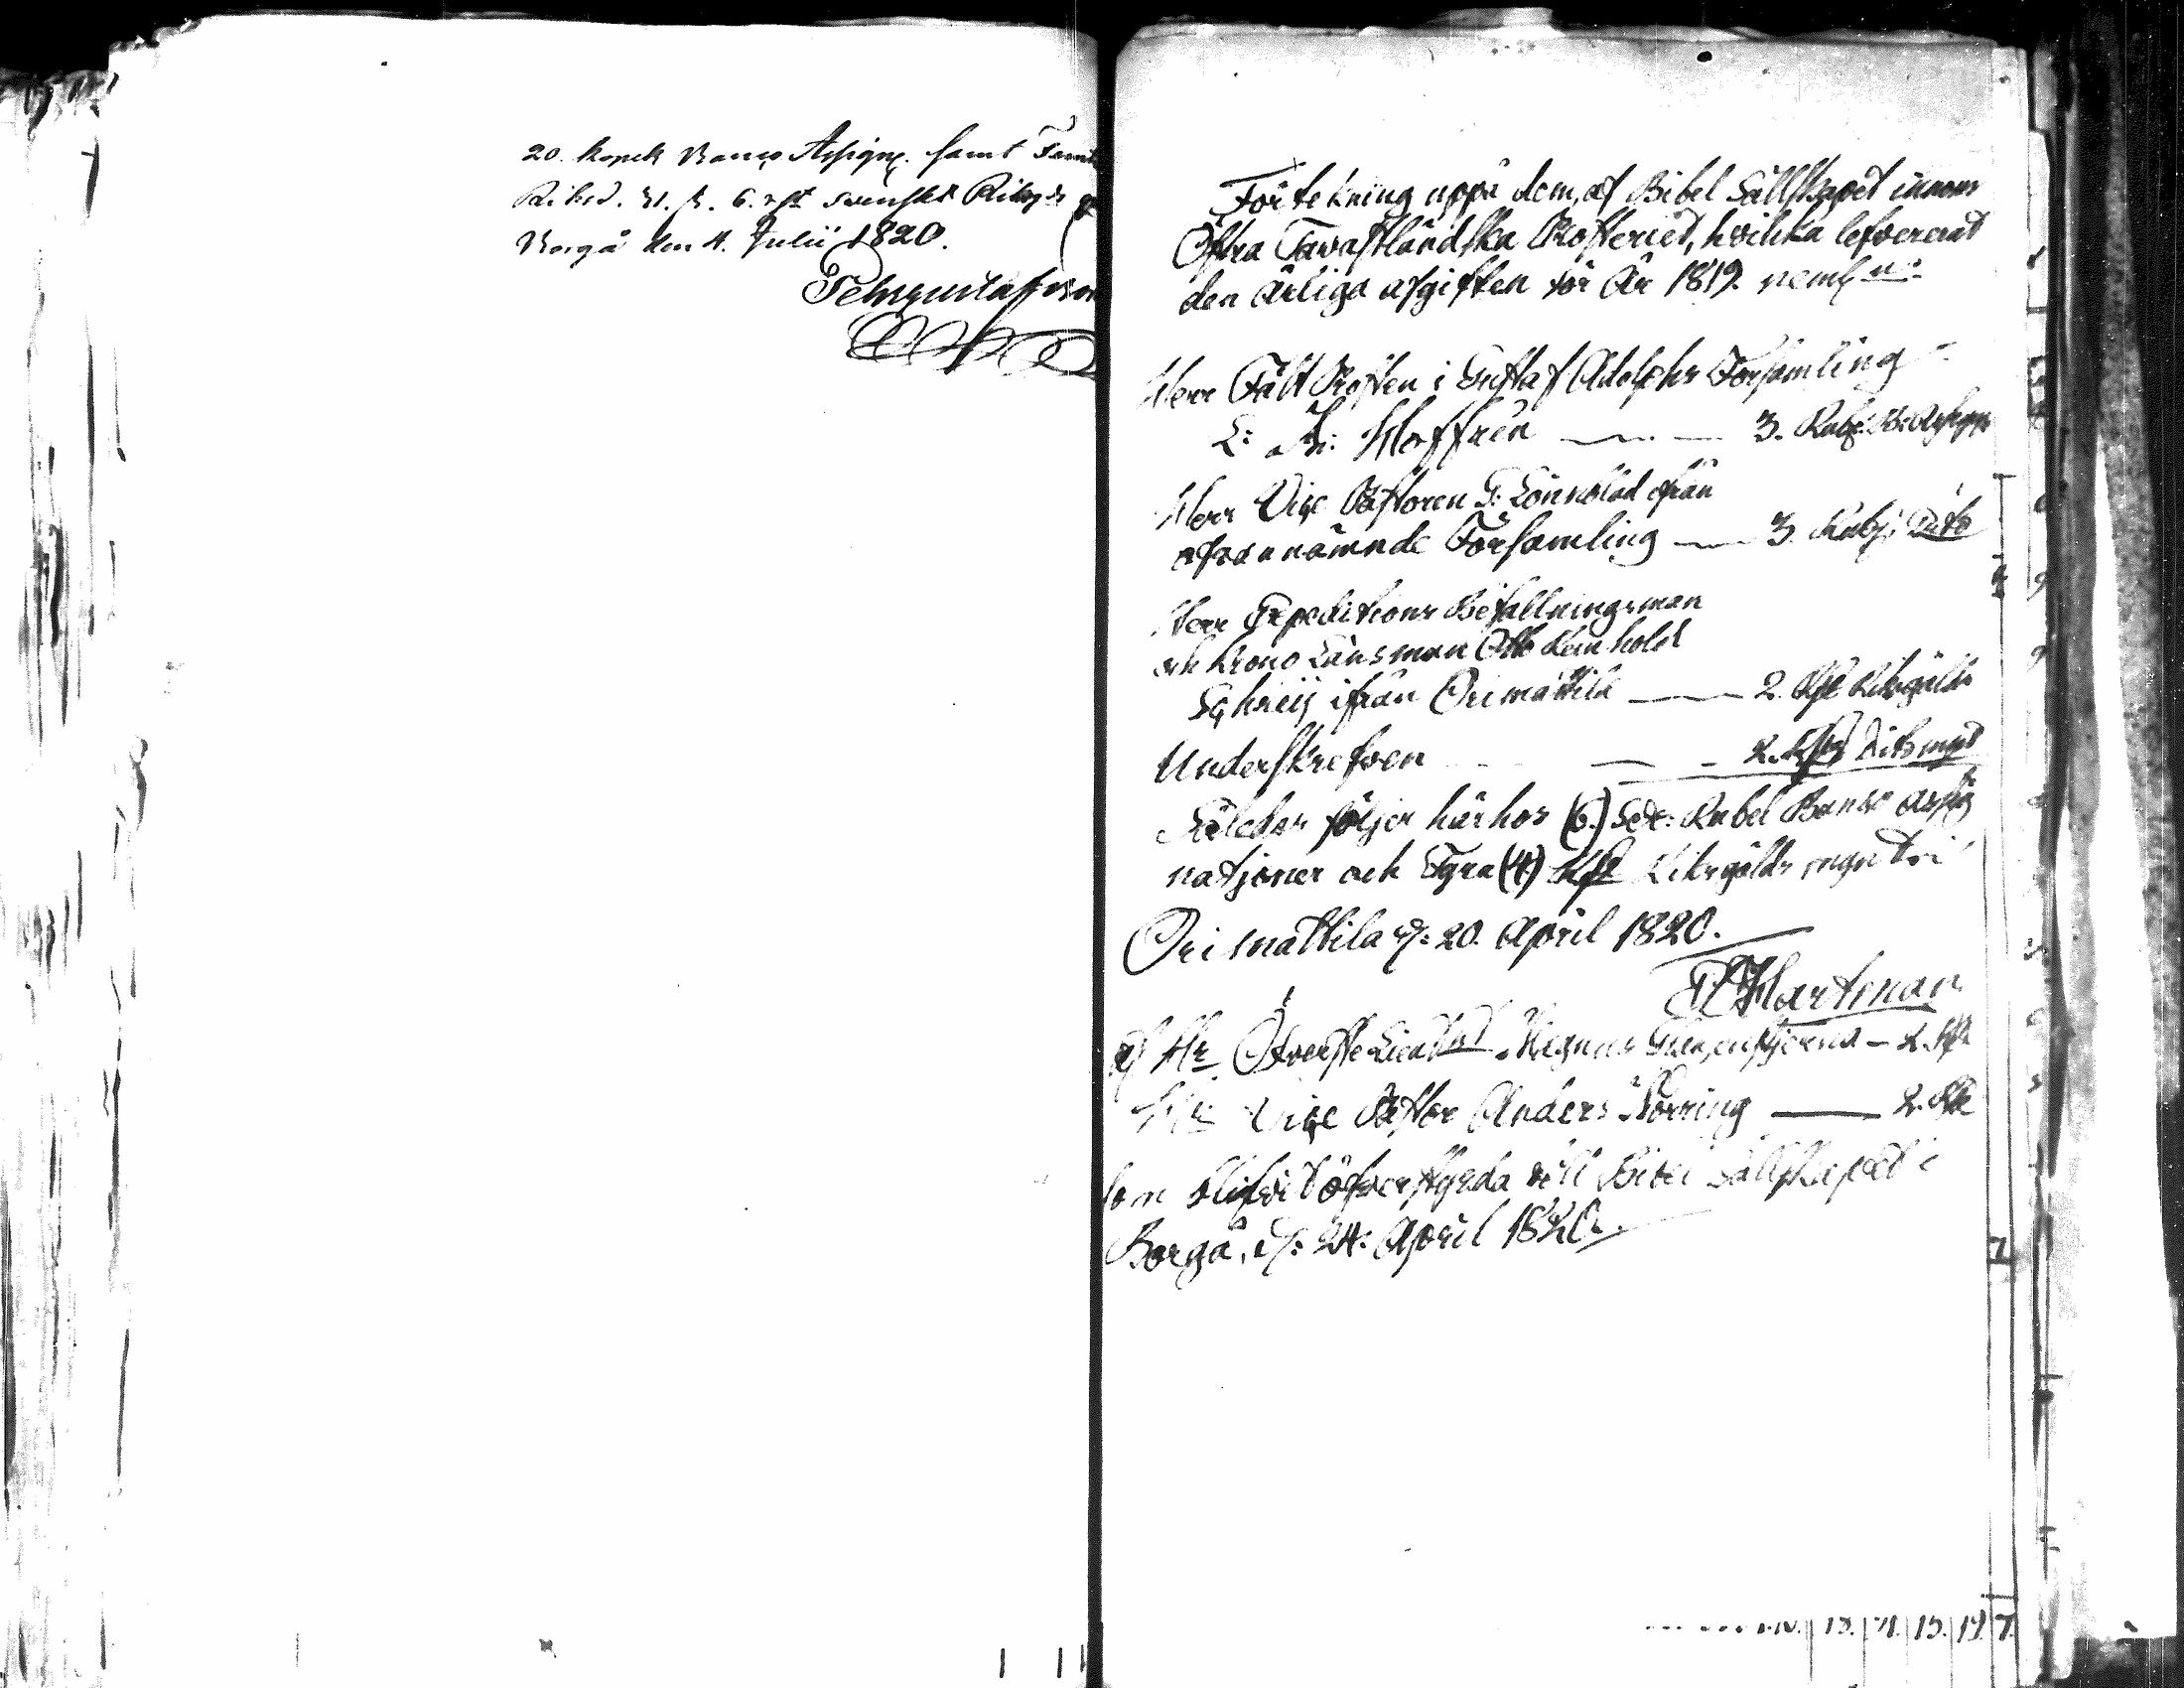 20. Kopek Banco Assign. samt Femt
Riksd. 31. s. 6. rst svenskt Riksg:s
Borgå den 4. Julii 1820.
Pehr Gustafsson
Förtekning uppå dem, af Bibel Sällskapet innom
Öfra Tavastländska Prosteriet, hvilka lefvererat
den årliga afgiften för År 1819. neml:n:
Herr Fält Prosten i Gustaf Adolphs Församling
L: Hoffrén — 3. Rub: B: Assign
Herr Vice Pastoren G: Lönnblad från
ofvannämnde Församling — 3. Rub: Dito
Herr Expeditions Befallningsman
och Krono Länsman Otto Reinhold
Schreij ifrån Orimattila — 2. Rd Riksgälds
Underskrefven — 2. Rd Riksmynt
Således följer härhos (6.) Sex: Rubel Banco assig
natjoner och Fyra (4) Rd Riksgälds mynt i
Orimattila d: 20. April 1820.
Hartman
af Hr Öfverste Lieutnt Magnus — 2. Rd
Hr Vice Pastor Anders Norring — 2. Rd
som blifvit öfverstyrda till Bibel Sällskapet i
Borgå, d: 24. April 1820.
13. 15. 19. 7.